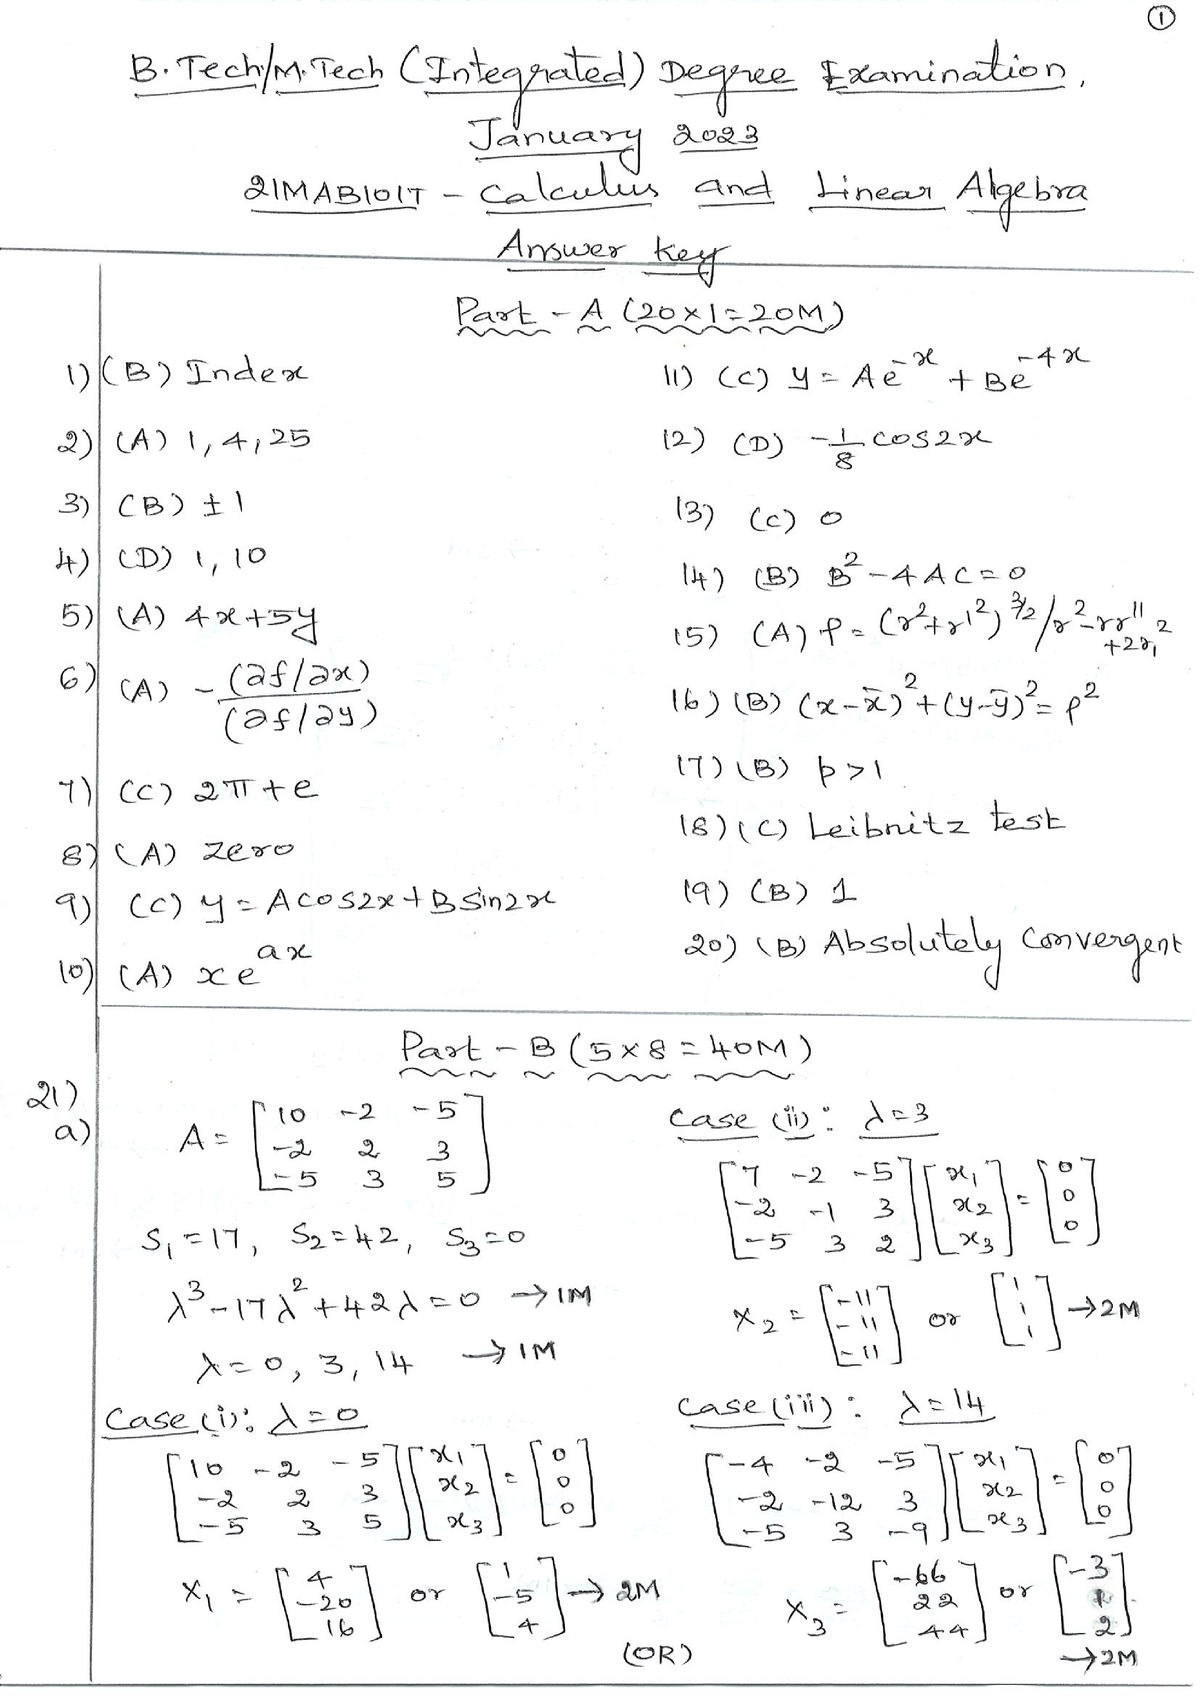 ①
B.Tech/M.Tech (Integrated) Degree Examination,
January 2023
21MAB101T - Calculus and Linear Algebra
Answer key
Part - A (20×1=20M)
1) (B) Index
2) (A) 1, 4, 25
3) (B) ±1
4) (D) 1, 10
5) (A) 4x+5y
6) (A) -(∂f/∂x)
(∂f/∂y)
7) (C) 2π+e
8) (A) zero
9) (C) y = A cos2x + B sin2x
10) (A) xe^ax
11) (C) y = Ae^-x + Be^-4x
12) (D) -1/8 cos2x
13) (C) 0
14) (B) B²-4AC=0
15) (A) ρ = (r²+r'²)^3/2 / r²-rr''
+2r₁²
16) (B) (x-x̄)²+(y-ȳ)²=ρ²
17) (B) p>1
18) (C) Leibnitz test
19) (B) 1
20) (B) Absolutely convergent
Part - B (5×8=40M)
21)
a)
A = [10 -2 -5
-2 2 3
-5 3 5]
S₁=17, S₂=42, S₃=0
λ³-17λ²+42λ=0 →1M
λ=0, 3, 14 →1M
Case (i): λ=0
[10 -2 -5] [x₁] = [0]
[-2 2 3] [x₂] [0]
[-5 3 5] [x₃] [0]
X₁ = [4 -20 16] or [1 -5 4] →2M
(OR)
Case (ii): λ=3
[7 -2 -5] [x₁] = [0]
[-2 -1 3] [x₂] [0]
[-5 3 2] [x₃] [0]
X₂ = [-11 -11 -11] or [1 1 1] →2M
Case (iii): λ=14
[-4 -2 -5] [x₁] = [0]
[-2 -12 3] [x₂] [0]
[-5 3 -9] [x₃] [0]
X₃ = [-66 22 44] or [-3 1 2]
→2M